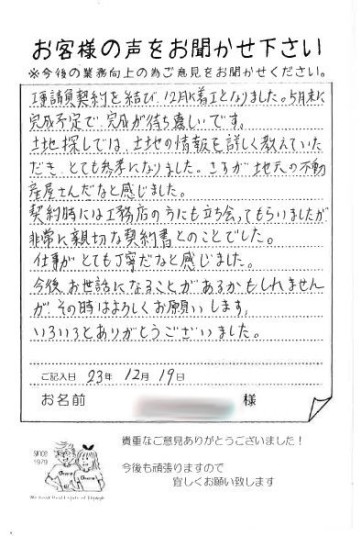 お客様の声をお聞かせ下さい
※今後の業務向上の為ご意見をお聞かせください。
工事請負契約を結び、12月に着工となりました。5月末に
完成予定で、完成が待ち遠しいです。
土地探しでは、土地の情報を詳しく教えていた
だき、とても参考になりました。さすが地元の不動
産屋さんだなと感じました。
契約時には工務店の方にも立ち会ってもらいましたが
非常に親切な契約書とのことでした。
仕事がとても丁寧だなと感じました。
今後、お世話になることがあるかもしれません
が、その時はよろしくお願いします。
いろいろとありがとうございました。
ご記入日 23年 12月 19日
お名前 様
貴重なご意見ありがとうございました!
今後も頑張りますので
宜しくお願い致します
SINCE
1979